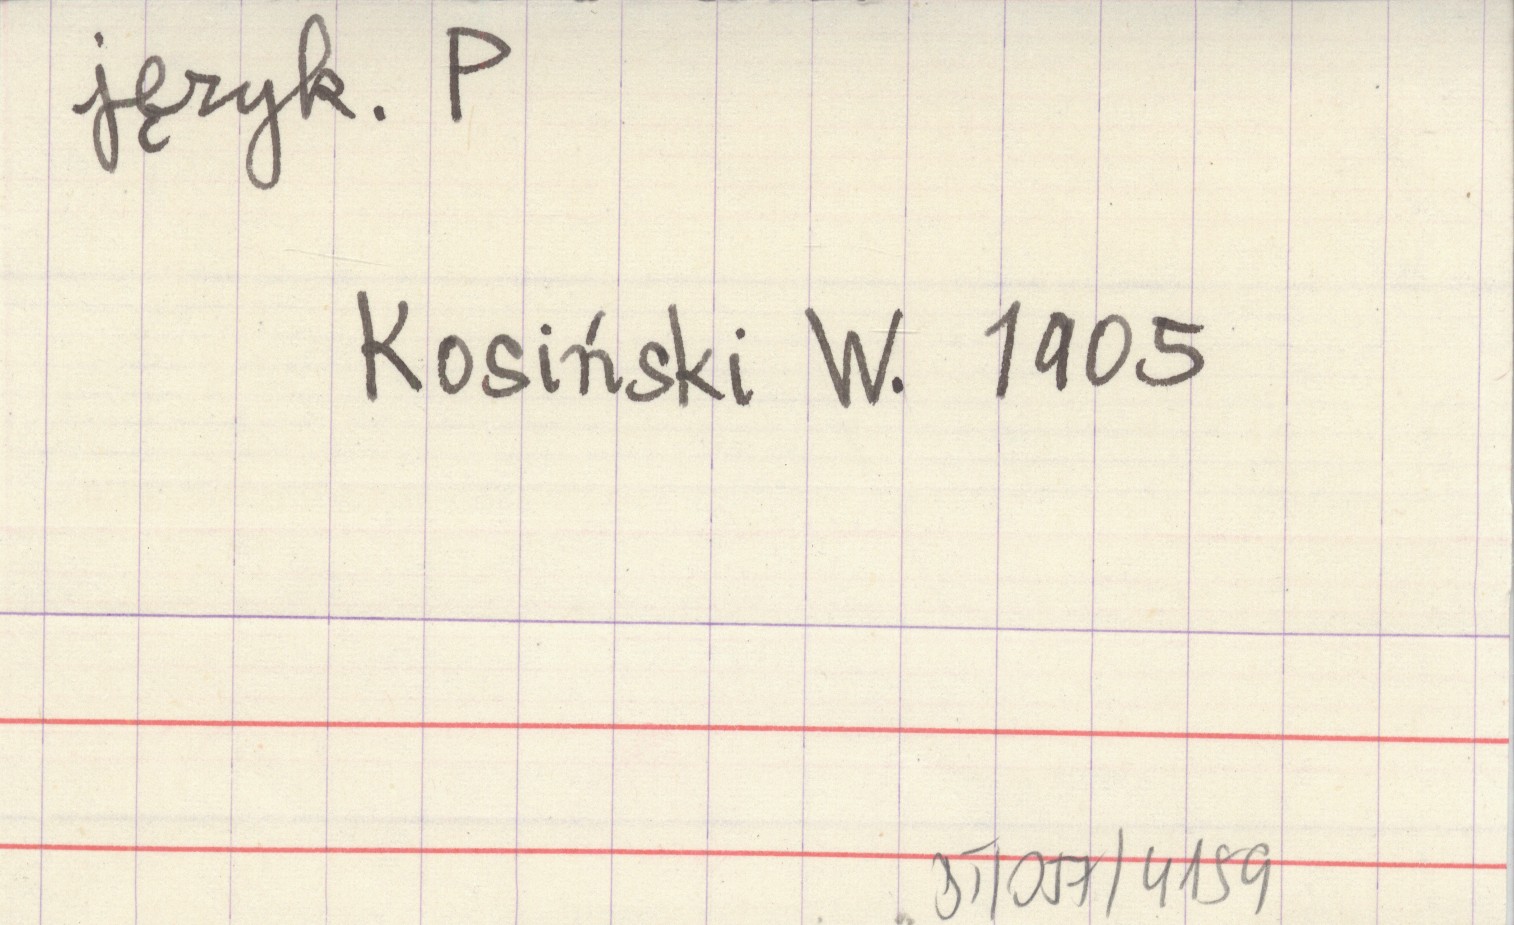 język. P
Kosiński W. 1905
BI/057/4159